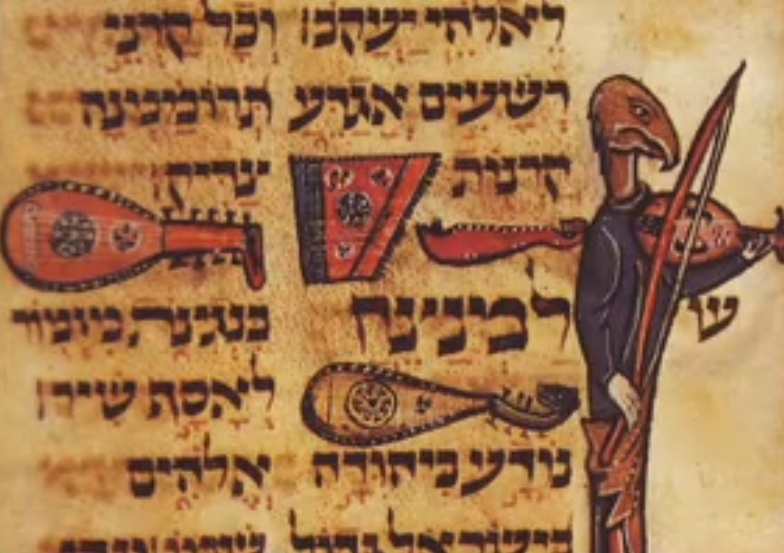 לאלהי יעקב׃ וכל קרני
רשעים אגדע תרוממנה
קרנות צדיק׃
למנצח בנגינת מזמור
לאסף שיר׃
נודע ביהודה אלהים
בישראל גדול